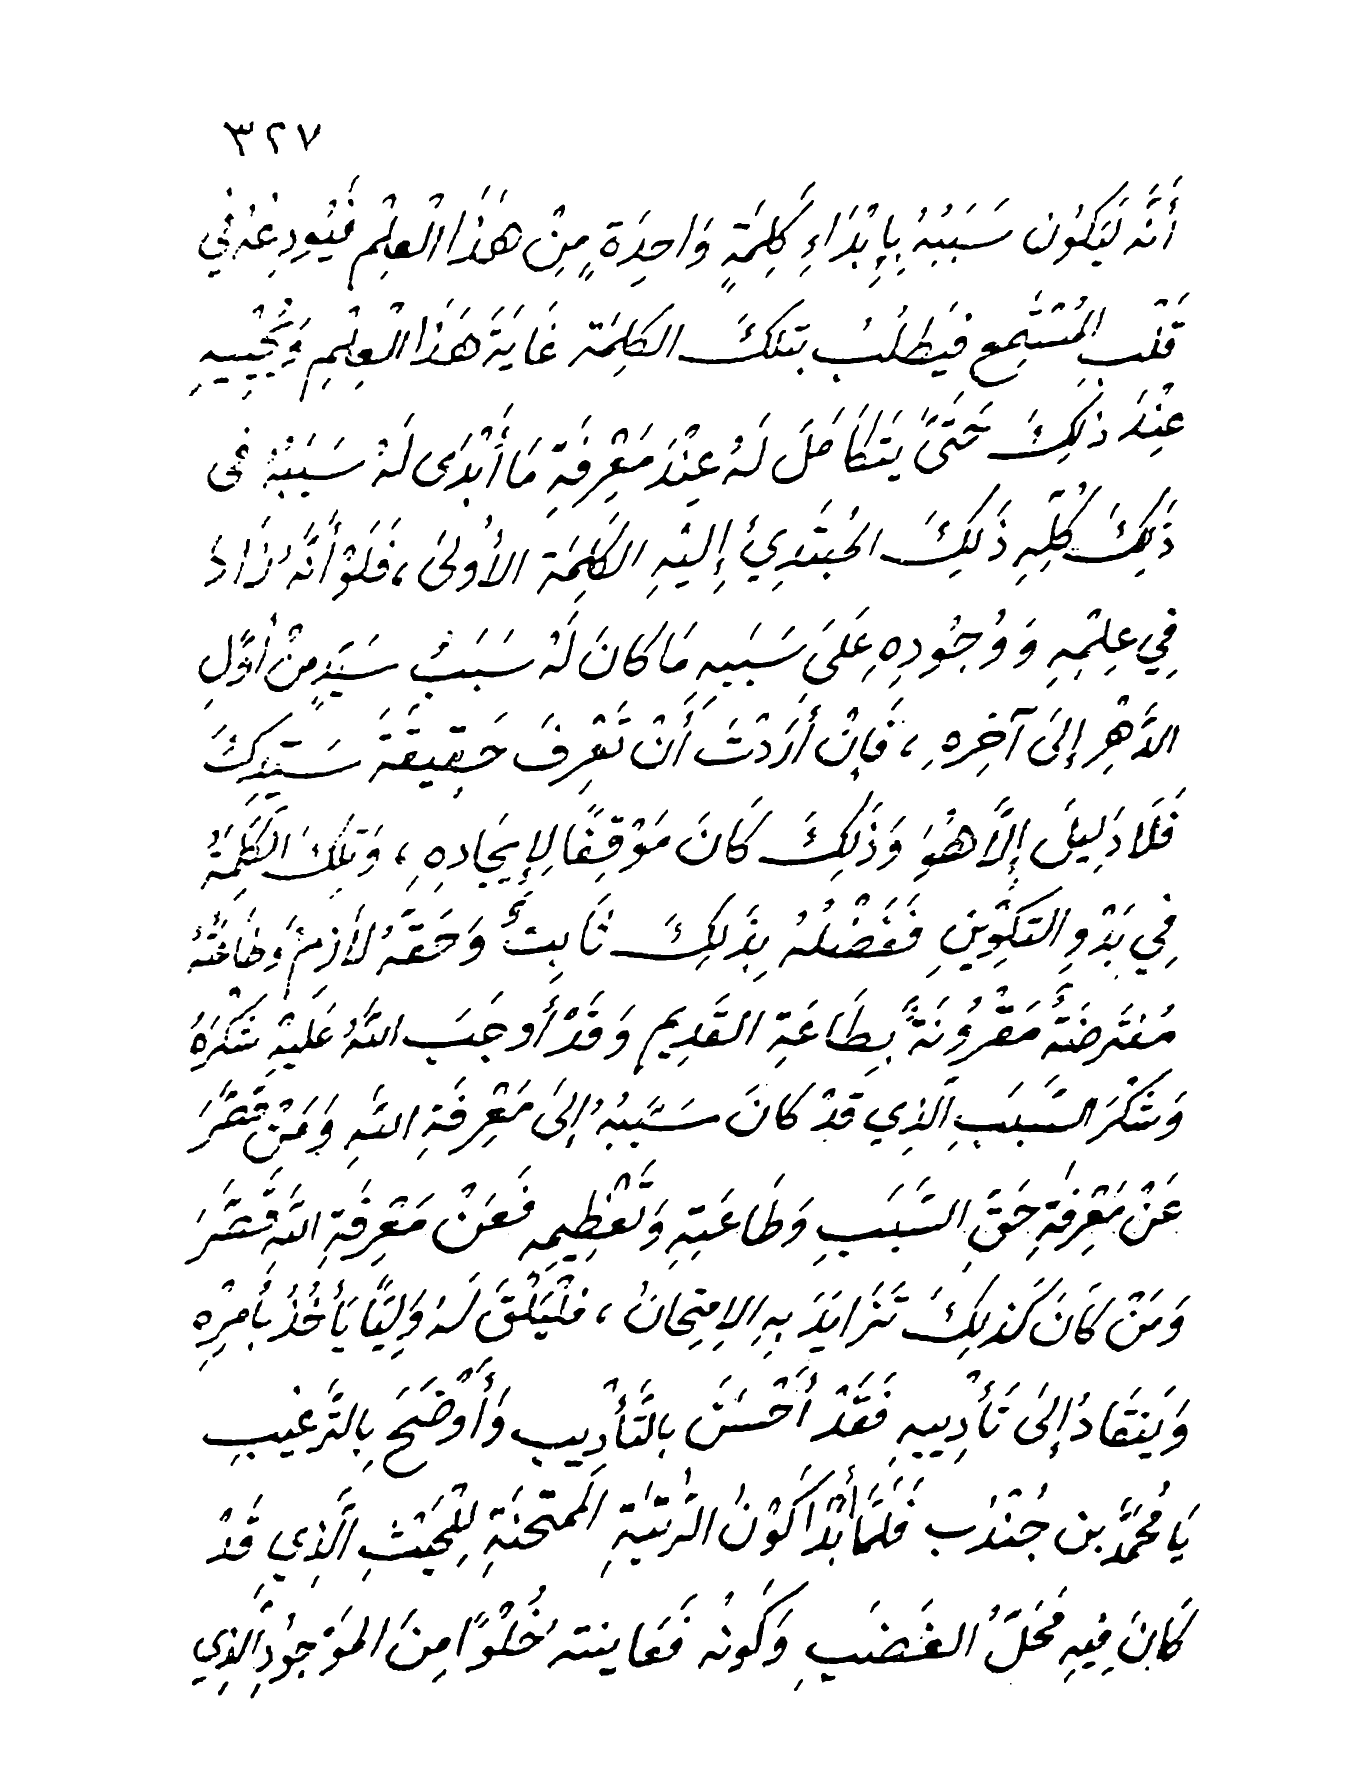 ٣٢٧
أَنَّه لَيَكُون سَبَبُهُ بِإِبْدَاءِ كَلِمَةٍ وَاحِدَةٍ مِنْ هَذَا الْعِلْمِ فَيُودِعُهُ فِي
قَلْبِ الْمُسْتَمِعِ فَيَطْلُبُ بتلكَ الكَلِمَة غَايَةَ هَذَا الْعِلْمِ وَيُجِيبهِ
عِنْدَ ذَلِكَ حَتَّى يَتَكَامَلَ لَهُ عِنْدَ مَعْرِفَةِ مَا أَبْدَى لَهُ سَبَبُهُ فى
ذَلِكَ كُلِّهِ ذَلِكَ المُبْتَدِئُ إِلَيْهِ الكَلِمَة الأُولىَ ، فَلَوْ أَنَّهُ زَادَ
فِي عِلْمِهِ وَوُجُودِهِ عَلَى سَبَبِهِ مَا كَانَ لَهُ سَبَبُ سَيِّدٍ مِنْ أَوَّلِ
الدَّهْرِ إِلَى آخِرِهِ ، فَإِنْ أَرَدْتَ أَنْ تَعْرِفَ حَقِيقَةَ سَيِّدِكَ
فَلَا دَلِيلَ إِلَّا هُوَ وَذَلِكَ كَانَ مَوْقِفًا لإِيجَادِهِ ، وَتِلْكَ الكَلِمَةُ
فِي بَدْوِ التَكْوِينِ فَفَضْلُهُ بِذَلِكَ ثَابِتٌ وَحَقَّهُ لَازِمٌ وَطَاعَتُهُ
مُفتَرضَةٌ مَقْرُونَةٌ بِطَاعَةِ القَدِيمِ وَقَدْ أَوجَبَ اللَّهُ عَلَيْهِ شُكْرَهُ
وَشُكْرَ السَّبَبِ الَّذِي قَدْ كَانَ سَبَبُهُ إِلَى مَعْرِفَةِ اللَّهِ وَمَنْ قَصَّرَ
عَنْ مَعْرِفَةِ حَقِّ السَّبَبِ وَطَاعَتِهِ وَتَعْظِيمِهِ فَعَنْ مَعْرِفَةِ اللَّهِ قَصَّرَ
وَمَنْ كَانَ كَذلِكَ تَزَايَدَ بِهِ الامتِحَانُ ، فَلْيَلْقَ لَهُ وَلِيًّا يَأْخُذُ بأَمْرِهِ
وَيَنقَادُ إِلَى تَأْدِيبِهِ فَقَدْ أَحْسَنَ بالتَّأْدِيبِ وَأَوْضَحَ بِالتَّرغيبِ
يَا مُحَمَّد بن جُنْدُب فَلَمَّا أَبْدَا كَوْنُ الرُّتْبَةِ المُمتَحنَةِ لِلْحَيْثِ الَّذِي قَدْ
كَانَ فِيهِ مَحَلُّ الغَضَبِ وَكَونُه فَعَاينته خُلْوًا مِنَ المَوْجُودِ الَّذِي